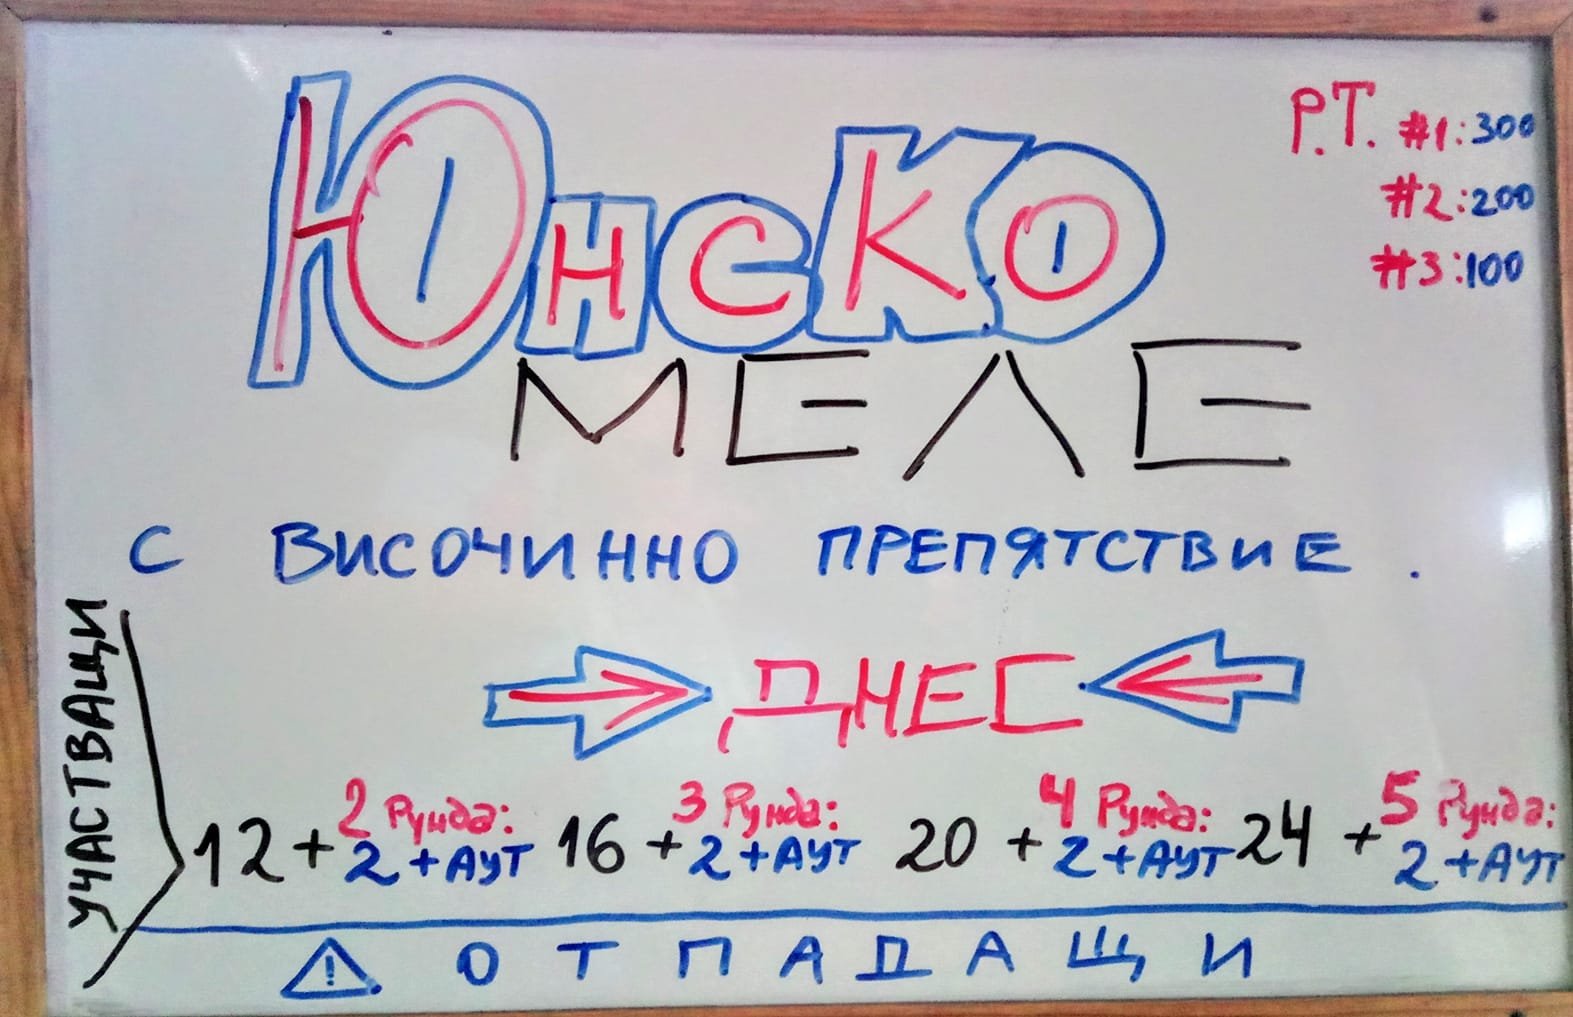 Юнско
МЕЛЕ
Р.Т. #1:300
#2:200
#3:100
С ВИСОЧИННО ПРЕПЯТСТВИЕ.
ДНЕС
УЧАСТВАЩИ
12+ 2 Рунда: 2+АУТ
16+ 3 Рунда: 2+АУТ
20+ 4 Рунда: 2+АУТ
24+ 5 Рунда: 2+АУТ
! ОТПАДАЩИ